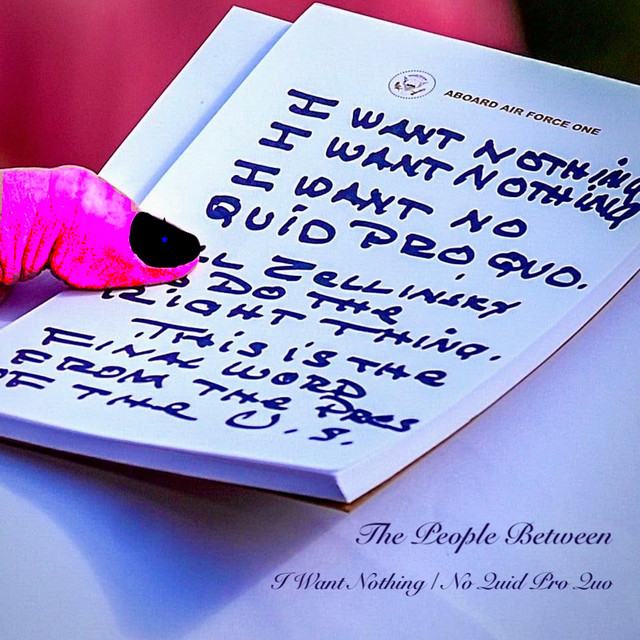 ABOARD AIR FORCE ONE
I WANT NOTHING
I WANT NOTHING
I WANT NO
QUID PRO QUO.
ZELLINSKY
DO THE
RIGHT THING.
THIS IS THE
FINAL WORD
FROM THE PRES
OF THE U.S.
The People Between
I Want Nothing / No Quid Pro Quo